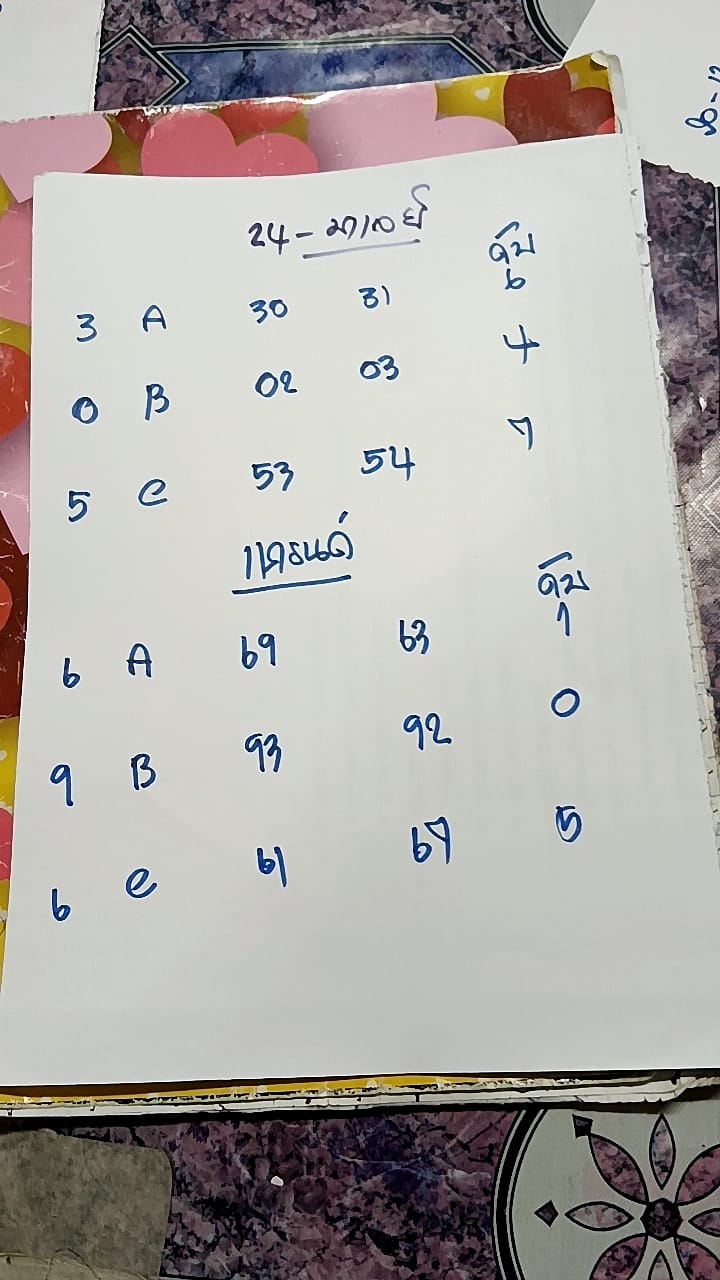 24 - มาเลย์
ดับ
3 A 30 31 6
0 B 02 03 4
5 C 53 54 7
แครนด์
ดับ
6 A 69 63 1
9 B 93 92 0
6 C 61 67 5